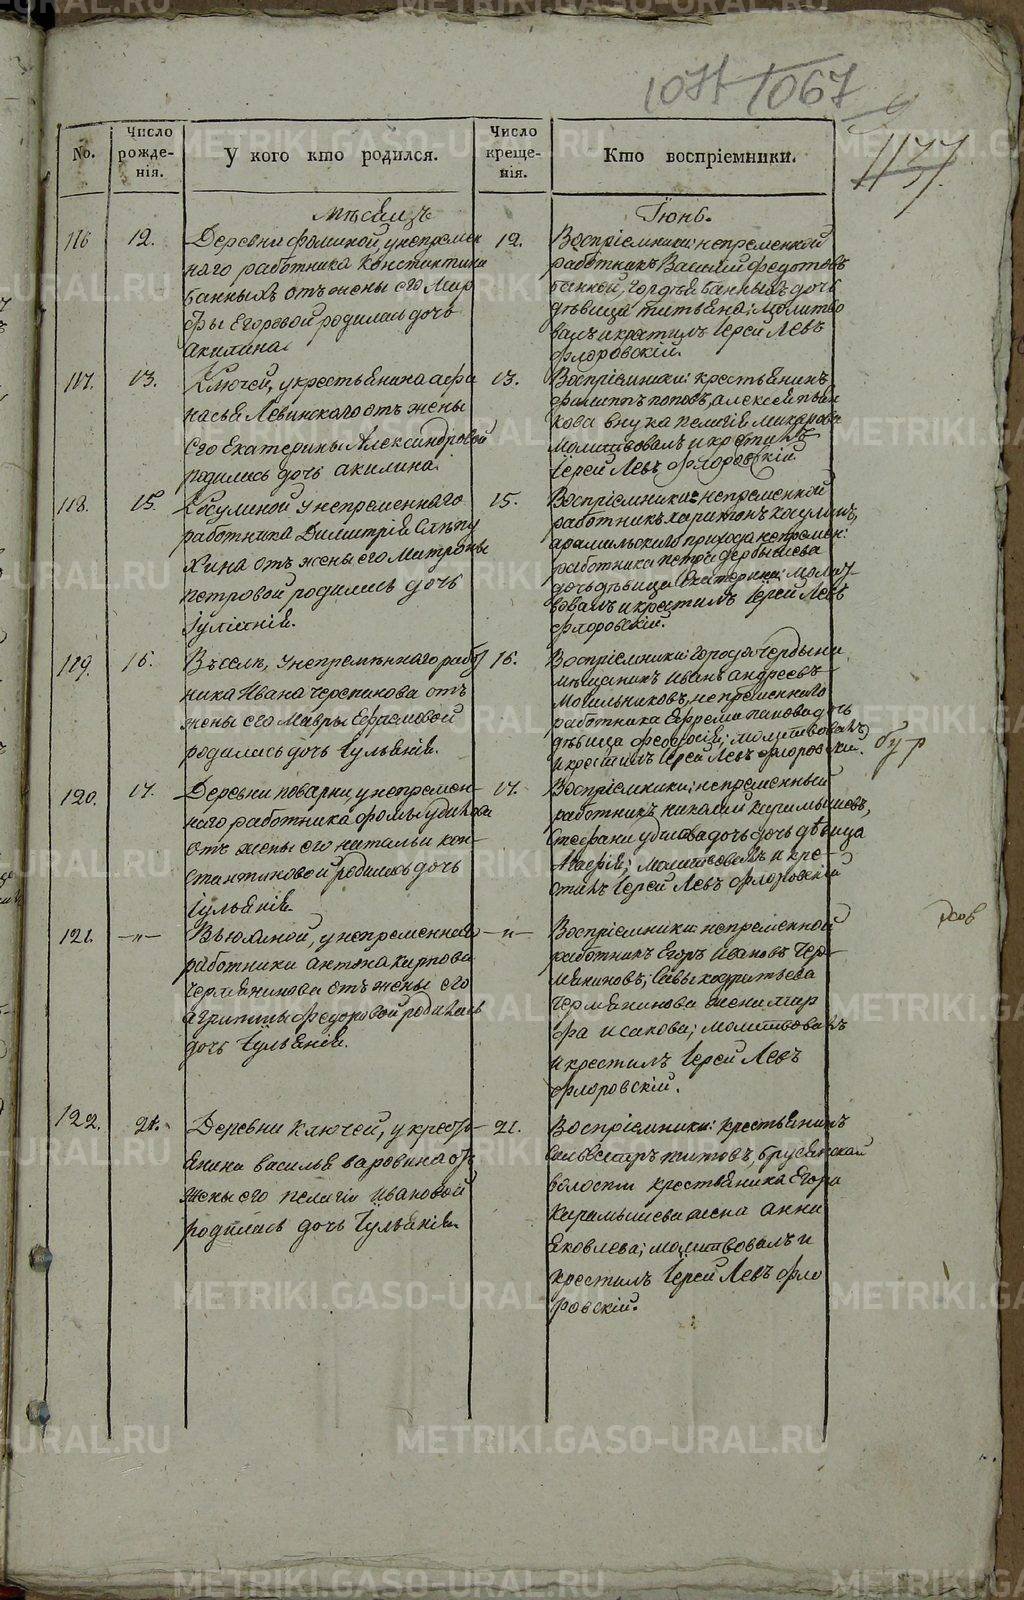 1071 1067
1177
No.
Число рожде-нія.
У кого кто родился.
Число креще-нія.
Кто воспріемники.
Мѣсяцъ
Іюнь.
116
12.
Деревни фоминой, у непремен
наго работника Констинтина
банныхъ отъ жены его Мар
фы Егоровой родилась дочь
акилина.
12.
Воспріемники: непременной
работникъ Василий федотовъ
банной, гордѣя банныхъ дочь
дѣвица татьяна; молитво
валъ и крестилъ Іерей Левъ
флоровскій.
117.
13.
Ключей, у крестьянина афа
насья Левинскаго отъ жены
его Екатерины Александровой
родилась дочь акилина.
13.
Воспріемники: крестьянинъ
филиппъ поповъ, алексея
кова внука пелагія макарова
молитвовалъ и крестилъ
Іерей Левъ флоровскій.
118.
15.
Косулиной у непременнаго
работника Димитрія Слѣпу
хина отъ жены его Матроны
петровой родилась дочь
Іулітнія.
15.
Воспріемники: непременной
работникъ харитонъ косулинъ,
арамильскаго прихода непремен:
работника петра дербышева
дочь дѣвица Екатерина; молит
вовалъ и крестилъ Іерей Левъ
флоровскій.
119.
16.
непремѣннаго рабо
ника Ивана Черепанова отъ
жены его Мавры Ефремовой
родилась дочь Іульянія.
16.
Воспріемники: города Чердыни
мѣщанинъ Иванъ андреевъ
Могильниковъ, непременнаго
работника Ефрема попова дочь
дѣвица феодосія; молитвовалъ
и крестилъ Іерей Левъ флоровски.
120.
17.
Деревни поварни, у непремен-
наго работника фомы удилова
отъ жены его натальи кон-
стантиновой родилась дочь
Іульянія.
17.
Воспріемники; непременный
работникъ николай карамышевъ,
Стефана удилова дочь дочь дѣвица
Агафія; молитвовалъ и кре-
стилъ Іерей Левъ флоровскій
121.
—„—
Вьюхиной, у непременнаго
работника антона карпова
Чермянинова отъ жены его
агрипины федоровой родилась
дочь Іульянія.
—„—
Воспріемники: непременной
работникъ Егоръ Ивановъ Чер-
мяниновъ, Савы кодратьева
Чермянинова жена мар
фа исакова; молитвовалъ
и крестилъ Іерей Левъ
флоровскій.
122.
21.
Деревни Ключей, у кресть-
янина василья варовина отъ
жены его пелагіи Ивановой
родилась дочь Іульянія.
21.
Воспріемники: крестьянинъ
сильвестръ титовъ, брусянской
волости крестьянина Егора
карамышева жена анна
яковлева; молитвовалъ и
крестилъ Іерей Левъ фло
ровскій.
METRIKI.GASO-URAL.RU